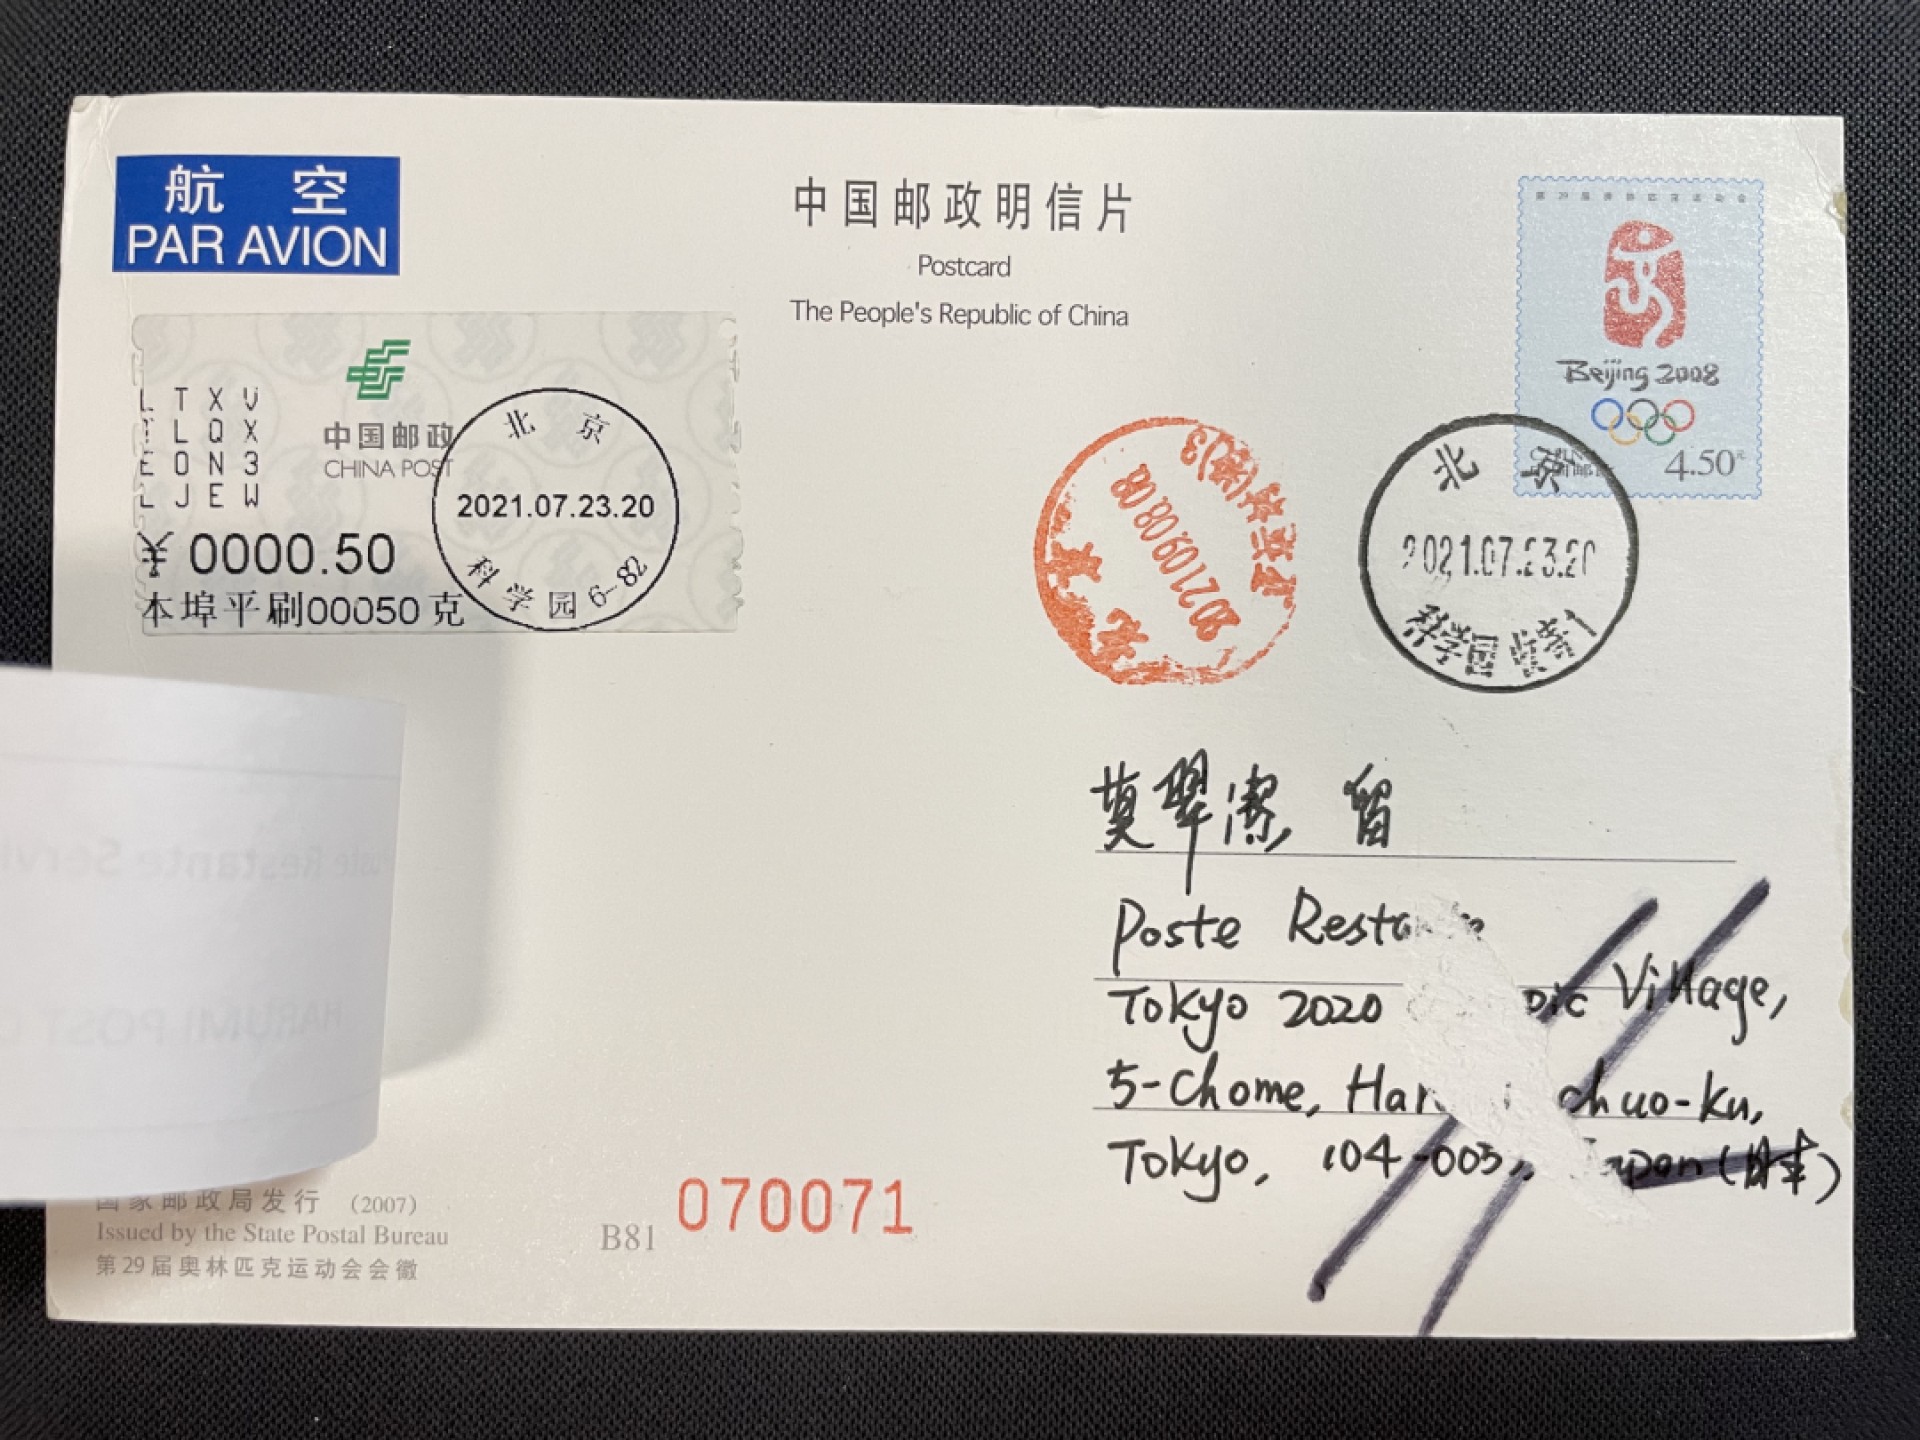 航 空
PAR AVION
中国邮政明信片
Postcard
The People's Republic of China
第29届奥林匹克运动会
Beijing 2008
4.50元
L T X V
T L Q X
E O N 3
L J E W
中国邮政
CHINA POST
¥ 0000.50
本埠平刷00050克
北 京
2021.07.23.20
科学园6-82
北京
2021.09.08.08
北 京
2021.07.23.20
科学园
莫翠潔, 留
Poste
Tokyo 2020 Village,
5-Chome, chuo-Ku,
Tokyo, 104-005, (日本)
国家邮政局发行 (2007)
Issued by the State Postal Bureau
第29届奥林匹克运动会会徽
B81
070071